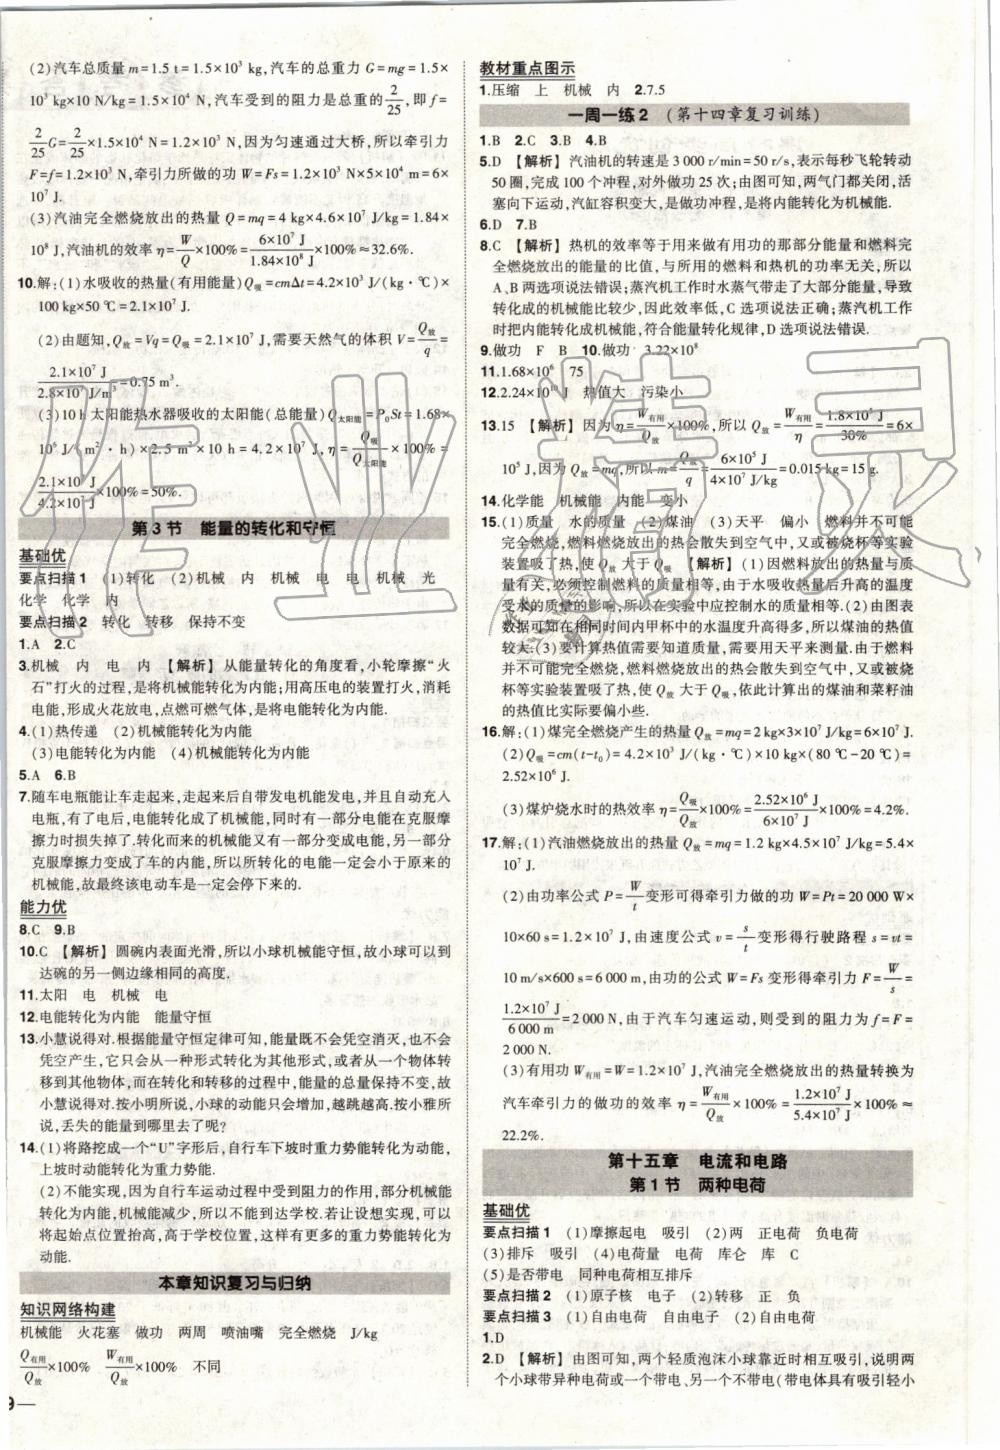 (2)汽车总质量 m=1.5 t=1.5×10³ kg,汽车的总重力 G=mg=1.5×
10³ kg×10 N/kg=1.5×10⁴ N,汽车受到的阻力是总重的2/25,即f=
2/25G=2/25×1.5×10⁴ N=1.2×10³ N,因为匀速通过大桥,所以牵引力
F=f=1.2×10³ N,牵引力所做的功 W=Fs=1.2×10³ N×5×10⁴ m=6×
10⁷ J.
(3)汽油完全燃烧放出的热量 Q=mq=4 kg×4.6×10⁷ J/kg=1.84×
10⁸ J,汽油机的效率 η=W/Q×100%=6×10⁷ J/1.84×10⁸ J×100%≈32.6%.
10.解:(1)水吸收的热量(有用能量)Q吸=cmΔt=4.2×10³ J/(kg·℃)×
100 kg×50 ℃=2.1×10⁷ J.
(2)由题知,Q放=Vq=Q吸=2.1×10⁷ J,需要天然气的体积 V=Q放/q=
2.1×10⁷ J/2.8×10⁷ J/m³=0.75 m³.
(3)10 h 太阳能热水器吸收的太阳能(总能量)Q太阳能=P₀St=1.68×
10⁶ J/(m²·h)×2.5 m²×10 h=4.2×10⁷ J,η=Q吸/Q太阳能×100%=
2.1×10⁷ J/4.2×10⁷ J×100%=50%.
第3节 能量的转化和守恒
基础优
要点扫描1 (1)转化 (2)机械 内 机械 电 电 机械 光
化学 化学 内
要点扫描2 转化 转移 保持不变
1.A 2.C
3.机械 内 电 内 【解析】从能量转化的角度看,小轮摩擦“火
石”打火的过程,是将机械能转化为内能;用高压电的装置打火,消耗
电能,形成火花放电,点燃可燃气体,是将电能转化为内能.
4.(1)热传递 (2)机械能转化为内能
(3)电能转化为内能 (4)机械能转化为内能
5.A 6.B
7.随车电瓶能让车走起来,走起来后自带发电机能发电,并且自动充入
电瓶,有了电后,电能转化成了机械能,同时有一部分电能在克服摩
擦力时损失掉了.转化而来的机械能又有一部分变成电能,另一部分
克服摩擦力变成了车的内能,所以所转化的电能一定会小于原来的
机械能,故最终该电动车是一定会停下来的.
能力优
8.C 9.B
10.C 【解析】圆碗内表面光滑,所以小球机械能守恒,故小球可以到
达碗的另一侧边缘相同的高度.
11.太阳 电 机械 电
12.电能转化为内能 能量守恒
13.小慧说得对.根据能量守恒定律可知,能量既不会凭空消灭,也不会
凭空产生,它只会从一种形式转化为其他形式,或者从一个物体转
移到其他物体,而在转化和转移的过程中,能量的总量保持不变,故
小慧说得对.按小明所说,小球的动能会增加,越跳越高.按小雅所
说,丢失的能量到哪里去了呢?
14.(1)将路挖成一个“U”字形后,自行车下坡时重力势能转化为动能,
上坡时动能转化为重力势能.
(2)不能实现,因为自行车运动过程中受到阻力的作用,部分机械能
转化为内能,机械能减少,所以不可能到达学校.若让设想实现,可以
将起点位置抬高,高于学校位置,这样有更多的重力势能转化为
动能.
本章知识复习与归纳
知识网络构建
机械能 火花塞 做功 两周 喷油嘴 完全燃烧 J/kg
Q有用/Q放×100% W有用/Q放×100% 不同
9—
教材重点图示
1.压缩 上 机械 内 2.7.5
一周一练2 (第十四章复习训练)
1.B 2.C 3.B 4.B
5.D 【解析】汽油机的转速是 3 000 r/min=50 r/s,表示每秒飞轮转动
50圈,完成 100 个冲程,对外做功 25 次;由图可知,两气门都关闭,活
塞向下运动,汽缸容积变大,是做功冲程,是将内能转化为机械能.
6.D 7.B
8.C 【解析】热机的效率等于用来做有用功的那部分能量和燃料完
全燃烧放出的能量的比值,与所用的燃料和热机的功率无关,所以
A、B 两选项说法错误;蒸汽机工作时水蒸气带走了大部分能量,导致
转化成的机械能比较少,因此效率低,C 选项说法正确;蒸汽机工作
时把内能转化成机械能,符合能量转化规律,D 选项说法错误.
9.做功 F B 10.做功 3.22×10⁸
11.1.68×10⁶ 75
12.2.24×10¹⁰ J 热值大 污染小
13.15 【解析】因为 η=W有用/Q放×100%,所以 Q放=W有用/η=1.8×10⁵ J/30%=6×
10⁵ J,因为 Q放=mq,所以 m=Q放/q=6×10⁵ J/4×10⁷ J/kg=0.015 kg=15 g.
14.化学能 机械能 内能 变小
15.(1)质量 水的质量 (2)煤油 (3)天平 偏小 燃料并不可能
完全燃烧,燃料燃烧放出的热会散失到空气中,又或被烧杯等实验
装置吸了热,使 Q放 大于 Q吸 【解析】(1)因燃料放出的热量与质
量有关,必须控制燃料的质量相等,由于水吸收热量后升高的温度
受水的质量的影响,所以在实验中应控制水的质量相等.(2)由图表
数据可知在相同时间内甲杯中的水温度升高得多,所以煤油的热值
较大.(3)要计算热值需要知道质量,需要用天平来测量.由于燃料
并不可能完全燃烧,燃料燃烧放出的热会散失到空气中,又或被烧
杯等实验装置吸了热,使 Q放 大于 Q吸,依此计算出的煤油和菜籽油
的热值比实际要偏小些.
16.解:(1)煤完全燃烧产生的热量 Q放=mq=2 kg×3×10⁷ J/kg=6×10⁷ J.
(2)Q吸=cm(t-t₀)=4.2×10³ J/(kg·℃)×10 kg×(80 ℃-20 ℃)=
2.52×10⁶ J.
(3)煤炉烧水时的热效率 η=Q吸/Q放×100%=2.52×10⁶ J/6×10⁷ J×100%=4.2%.
17.解:(1)汽油燃烧放出的热量 Q放=mq=1.2 kg×4.5×10⁷ J/kg=5.4×
10⁷ J.
(2)由功率公式 P=W/t变形可得牵引力做的功 W=Pt=20 000 W×
10×60 s=1.2×10⁷ J,由速度公式 v=s/t变形得行驶路程 s=vt=
10 m/s×600 s=6 000 m,由功的公式 W=Fs 变形得牵引力 F=W/s=
1.2×10⁷ J/6 000 m=2 000 N,由于汽车匀速运动,则受到的阻力为 f=F=
2 000 N.
(3)有用功 W有用=W=1.2×10⁷ J,汽油完全燃烧放出的热量转换为
汽车牵引力的做功的效率 η=W有用/Q放×100%=1.2×10⁷ J/5.4×10⁷ J×100%≈
22.2%.
第十五章 电流和电路
第1节 两种电荷
基础优
要点扫描1 (1)摩擦起电 吸引 (2)两 正电荷 负电荷
(3)排斥 吸引 (4)电荷量 电荷 库仑 库 C
(5)是否带电 同种电荷相互排斥
要点扫描2 (1)原子核 电子 (2)转移 正 负
要点扫描3 (1)自由电荷 自由电子 (2)自由电荷
1.D
2.D 【解析】由图可知,两个轻质泡沫小球靠近时相互吸引,说明两
个小球带异种电荷或一个带电、另一个不带电(带电体具有吸引轻小
作业精灵